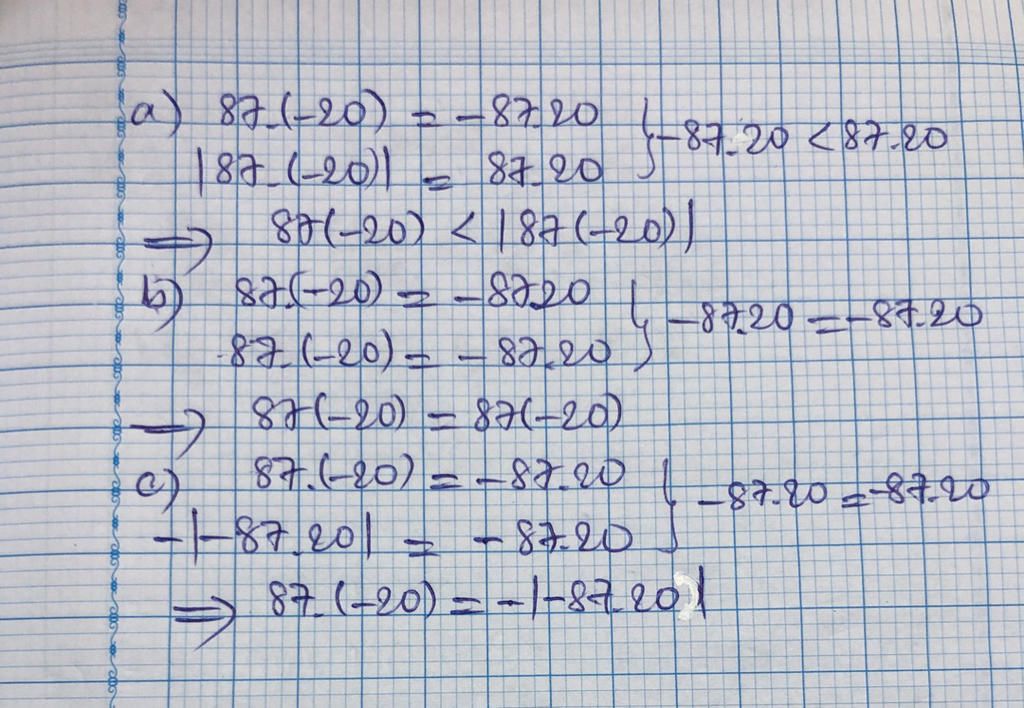 a) 87.(-20) = -87.20 } -87.20 < 87.20
|87.(-20)| = 87.20
⟹ 87(-20) < |87(-20)|
b) 87.(-20) = -87.20 } -87.20 = -87.20
87.(-20) = -87.20
⟹ 87(-20) = 87(-20)
c) 87.(-20) = -87.20 } -87.20 = -87.20
-|-87.20| = -87.20
⟹ 87.(-20) = -|-87.20|